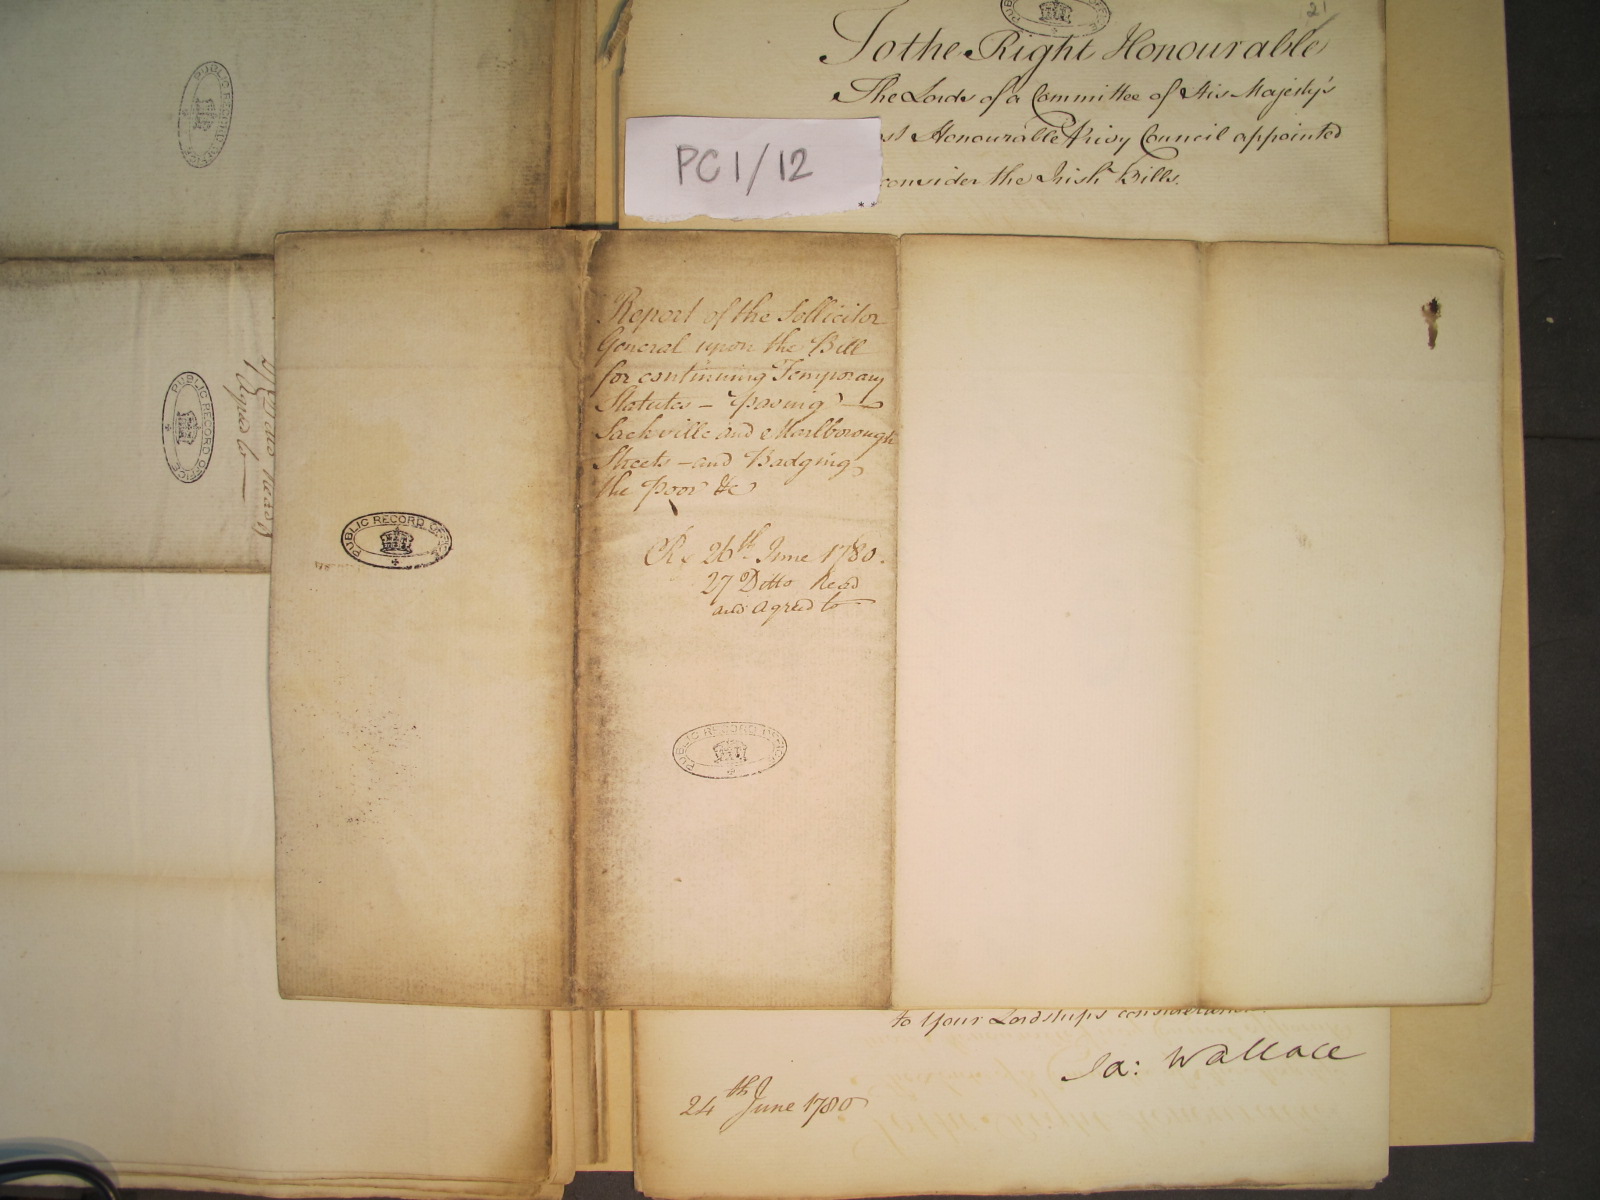 21
To the Right Honourable
The Lords of a Committee of His Majesty's
Honourable Privy Council appointed
consider the Irish Bills.
PC1/12
Report of the Sollicitor
General upon the Bill
for continuing Temporary
Statutes – Paving –
Sackville and Marlborough
Streets – and Badging
the Poor &c
Re 26th June 1780.
27 Ditto Read
and agreed to
PUBLIC RECORD OFFICE
PUBLIC RECORD OFFICE
PUBLIC RECORD OFFICE
PUBLIC RECORD OFFICE
Ditto Read
Agreed to
to Your Lordships consideration
Ja: Wallace
24th June 1780